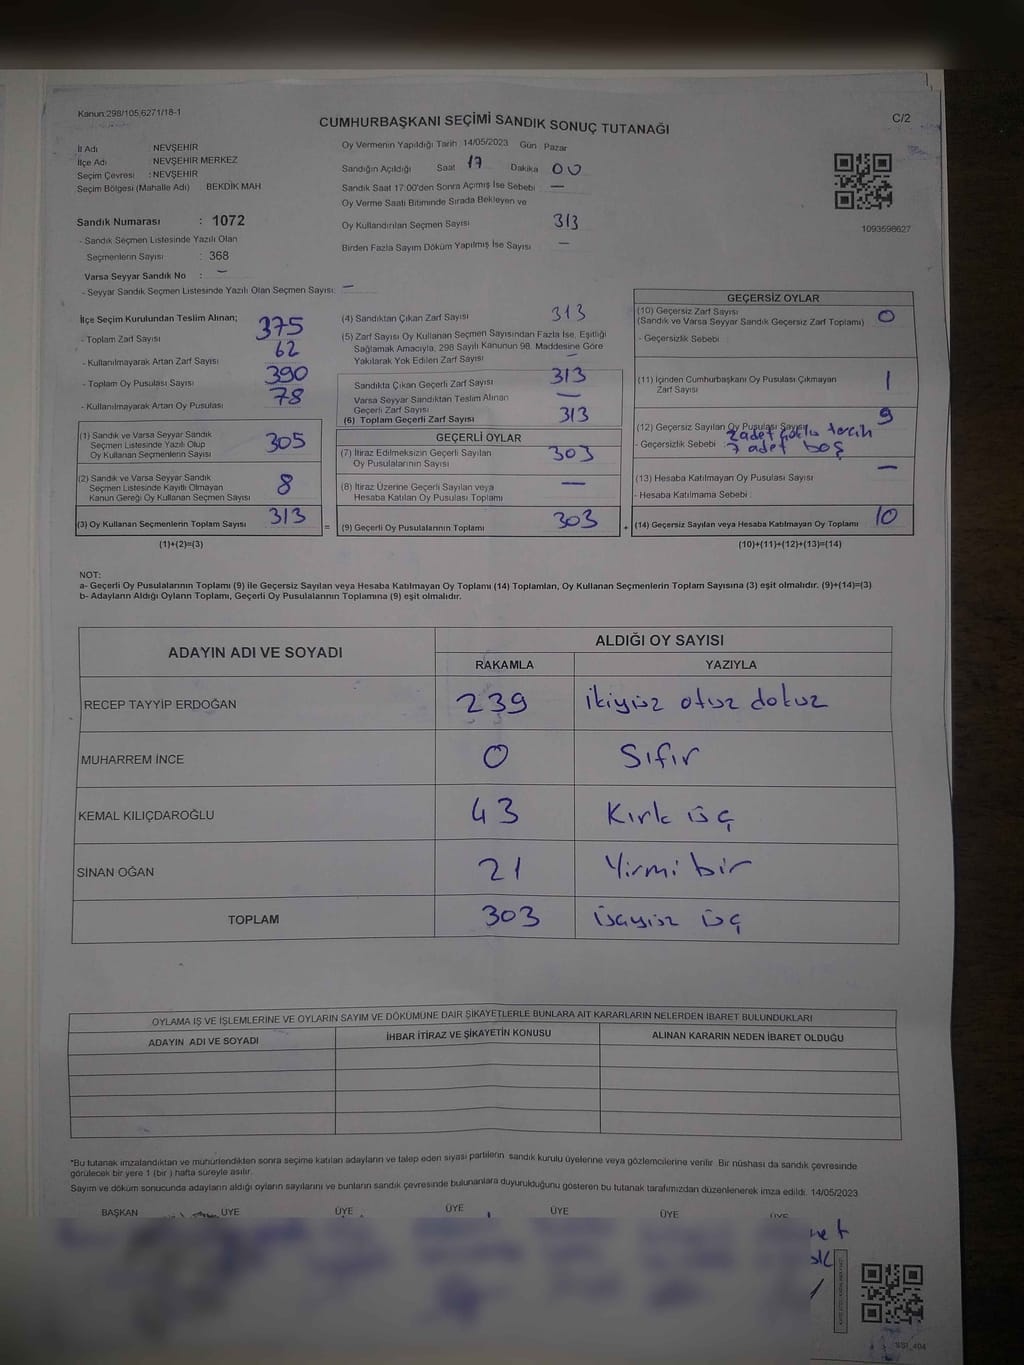 Kanun:298/105;6271/18-1
CUMHURBAŞKANI SEÇİMİ SANDIK SONUÇ TUTANAĞI
C/2
İl Adı NEVŞEHİR
İlçe Adı NEVŞEHİR MERKEZ
Seçim Çevresi : NEVŞEHİR
Seçim Bölgesi (Mahalle Adı) BEKDİK MAH
Sandık Numarası : 1072
- Sandık Seçmen Listesinde Yazılı Olan
Seçmenlerin Sayısı : 368
Varsa Seyyar Sandık No : –
- Seyyar Sandık Seçmen Listesinde Yazılı Olan Seçmen Sayısı: –
Oy Vermenin Yapıldığı Tarih 14/05/2023 Gün Pazar
Sandığın Açıldığı Saat 17 Dakika 00
Sandık Saat 17:00'den Sonra Açımış İse Sebebi –
Oy Verme Saati Bitiminde Sırada Bekleyen ve
Oy Kullandırılan Seçmen Sayısı 313
Birden Fazla Sayım Döküm Yapılmış İse Sayısı –
1093598627
İlçe Seçim Kurulundan Teslim Alınan;
- Toplam Zarf Sayısı 375
- Kullanılmayarak Artan Zarf Sayısı 62
- Toplam Oy Pusulası Sayısı 390
- Kullanılmayarak Artan Oy Pusulası 78
(1) Sandık ve Varsa Seyyar Sandık
Seçmen Listesinde Yazılı Olup
Oy Kullanan Seçmenlerin Sayısı 305
(2) Sandık ve Varsa Seyyar Sandık
Seçmen Listesinde Kayıtlı Olmayan
Kanun Gereği Oy Kullanan Seçmen Sayısı 8
(3) Oy Kullanan Seçmenlerin Toplam Sayısı 313
(1)+(2)=(3)
(4) Sandıktan Çıkan Zarf Sayısı 313
(5) Zarf Sayısı Oy Kullanan Seçmen Sayısından Fazla İse, Eşitliği
Sağlamak Amacıyla, 298 Sayılı Kanunun 98. Maddesine Göre
Yakılarak Yok Edilen Zarf Sayısı –
Sandıkta Çıkan Geçerli Zarf Sayısı 313
Varsa Seyyar Sandıktan Teslim Alınan
Geçerli Zarf Sayısı –
(6) Toplam Geçerli Zarf Sayısı 313
GEÇERLİ OYLAR
(7) İtiraz Edilmeksizin Geçerli Sayılan
Oy Pusulalarının Sayısı 303
(8) İtiraz Üzerine Geçerli Sayılan veya
Hesaba Katılan Oy Pusulası Toplamı –
= (9) Geçerli Oy Pusulalarının Toplamı 303
GEÇERSİZ OYLAR
(10) Geçersiz Zarf Sayısı
(Sandık ve Varsa Seyyar Sandık Geçersiz Zarf Toplamı) 0
- Geçersizlik Sebebi :
(11) İçinden Cumhurbaşkanı Oy Pusulası Çıkmayan
Zarf Sayısı 1
(12) Geçersiz Sayılan Oy Pusulası Sayısı 9
2 adet çoklu tercih
- Geçersizlik Sebebi : 7 adet boş
(13) Hesaba Katılmayan Oy Pusulası Sayısı –
- Hesaba Katılmama Sebebi :
+ (14) Geçersiz Sayılan veya Hesaba Katılmayan Oy Toplamı 10
(10)+(11)+(12)+(13)=(14)
NOT:
a- Geçerli Oy Pusulalarının Toplamı (9) ile Geçersiz Sayılan veya Hesaba Katılmayan Oy Toplamı (14) Toplamları, Oy Kullanan Seçmenlerin Toplam Sayısına (3) eşit olmalıdır. (9)+(14)=(3)
b- Adayların Aldığı Oyların Toplamı, Geçerli Oy Pusulalarının Toplamına (9) eşit olmalıdır.
ADAYIN ADI VE SOYADI
ALDIĞI OY SAYISI
RAKAMLA YAZIYLA
RECEP TAYYİP ERDOĞAN 239 ikiyüz otuz dokuz
MUHARREM İNCE 0 Sıfır
KEMAL KILIÇDAROĞLU 43 Kırk üç
SİNAN OĞAN 21 Yirmi bir
TOPLAM 303 üçyüz üç
OYLAMA İŞ VE İŞLEMLERİNE VE OYLARIN SAYIM VE DÖKÜMÜNE DAİR ŞİKAYETLERLE BUNLARA AİT KARARLARIN NELERDEN İBARET BULUNDUKLARI
ADAYIN ADI VE SOYADI İHBAR İTİRAZ VE ŞİKAYETİN KONUSU ALINAN KARARIN NEDEN İBARET OLDUĞU
*Bu tutanak imzalandıktan ve mühürlendikten sonra seçime katılan adayların ve talep eden siyasi partilerin sandık kurulu üyelerine veya gözlemcilerine verilir. Bir nüshası da sandık çevresinde
görülecek bir yere 1 (bir ) hafta süreyle asılır.
Sayım ve döküm sonucunda adayların aldığı oyların sayılarını ve bunların sandık çevresinde bulunanlara duyurulduğunu gösteren bu tutanak tarafımızdan düzenlenerek imza edildi. 14/05/2023
BAŞKAN ÜYE ÜYE ÜYE ÜYE ÜYE ÜYE